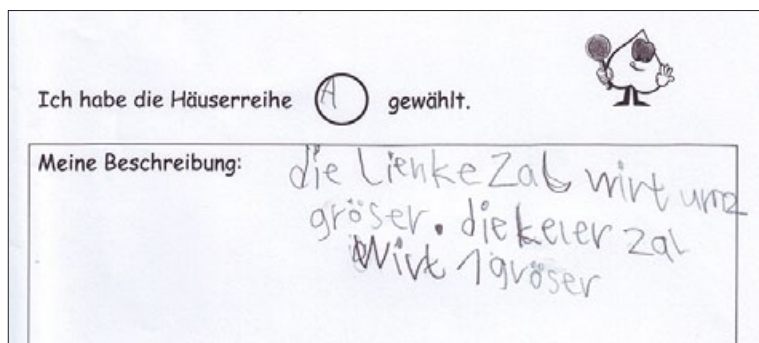 Ich habe die Häuserreihe A gewählt.
Meine Beschreibung:
die Lienke Zal wirt um 2
gröser. die keler zal
wirt 1 gröser